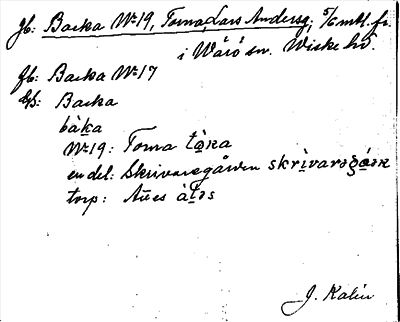 Jb: Backa No 19, Torna, Lars Andersg, 5/6 mtl. fr.
i Wärö sn. Wiske hd.
Jb: Backa No 17
Us: Backa
bàka
No 19: Torna tò̠ṛa
en del: Skrivaregården skrìvarəgå̠ɑṛ
torp: Ates àt̠əs
J. Kalén